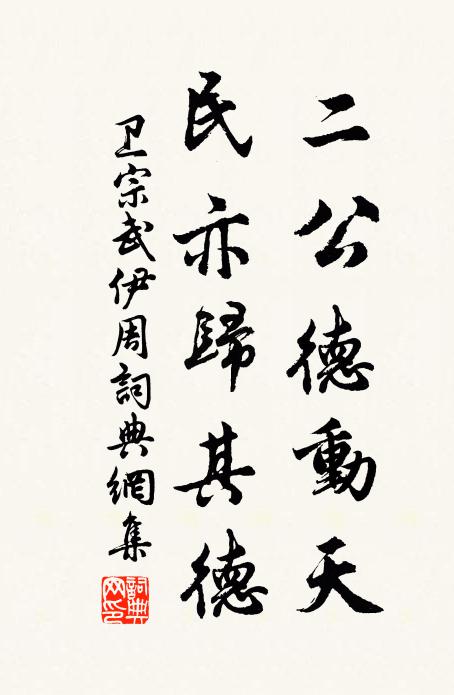 二公德動天
民亦歸其德
卫宗武伊周詞典網集
詞典网印